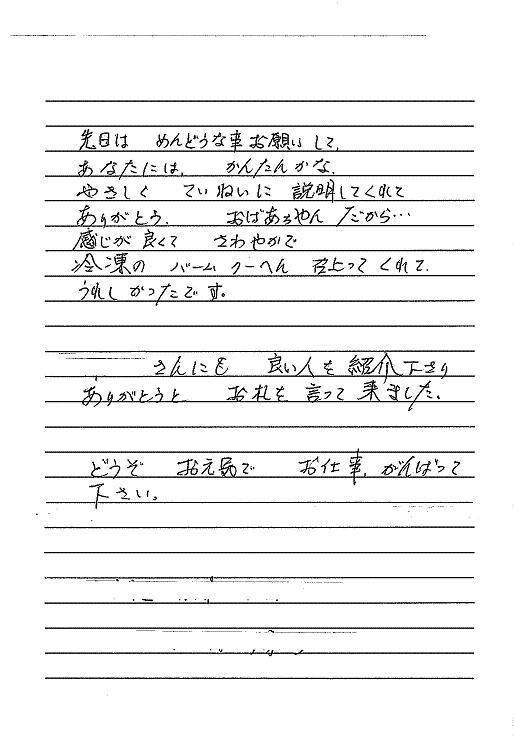 先日は めんどうな事お願いして、
あなたには、 かんたんかな、
やさしく ていねいに 説明してくれて
ありがとう、 おばあちゃん だから…
感じが 良くて さわやかで
冷凍の バームクーヘん 召上って くれて、
うれしかったです。
さんにも 良い人を 紹介下さり
ありがとうと お礼を 言って 来ました。
どうぞ お元気で お仕事、がんばって
下さい。